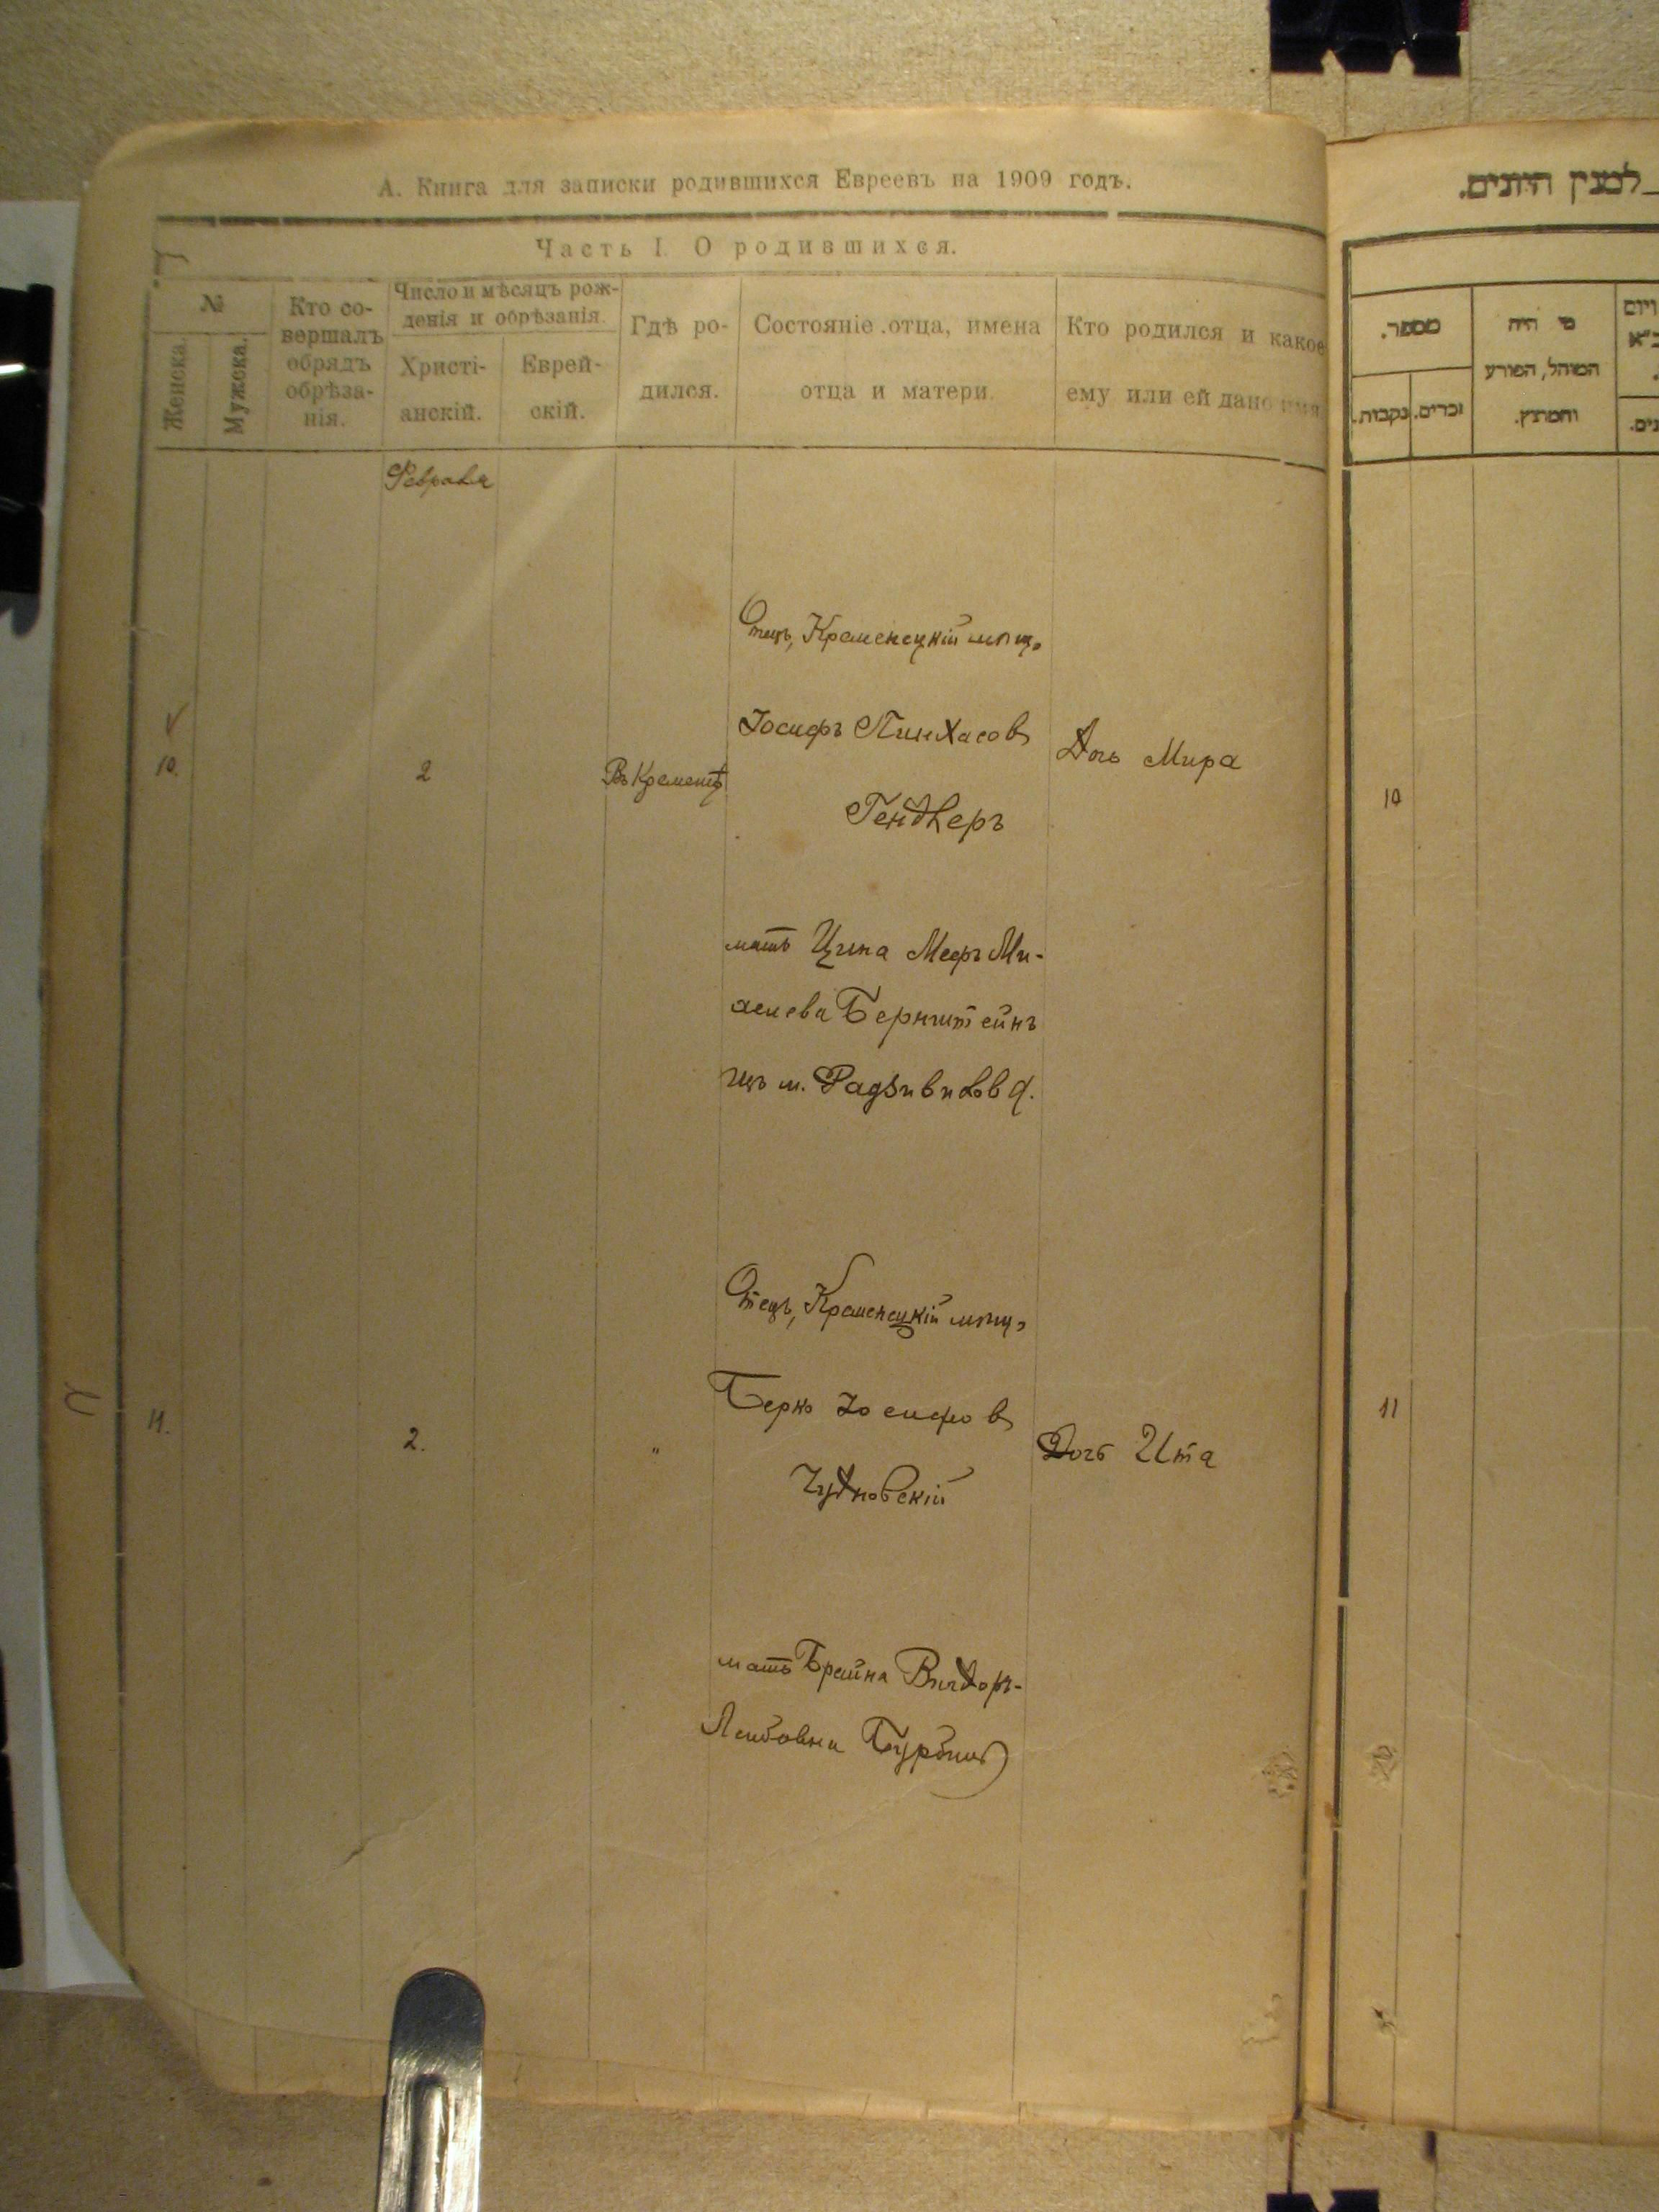 А. Книга для записки родившихся Евреевъ на 1909 годъ.
Часть I. О родившихся.
№
Женска.
Мужеска.
Кто со-
вершалъ
обрядъ
обрѣза-
нія.
Число и мѣсяцъ рож-
денія и обрѣзанія.
Христі-
анскій.
Еврей-
скій.
Гдѣ ро-
дился.
Состояніе отца, имена
отца и матери.
Кто родился и какое
ему или ей дано имя
Февраля
10.
2
Въ Кременцѣ
Отецъ, Кременецкій мѣщ.
Іосифъ Пинхасовъ
Гендлеръ
мать Ципа Мееръ Ми-
хелева Бернштейнъ
изъ м. Радзивиловa.
Дочь Мира
11.
2.
"
Отецъ, Кременецкій мѣщ.
Берко Іосифовъ
Чудновскій
мать Брайна
Лейбовна
Дочь Ита
למנין היונים.
מספר.
זכרים.
נקבות.
מי היה
המוהל, הפורע
והמוצץ.
10
11